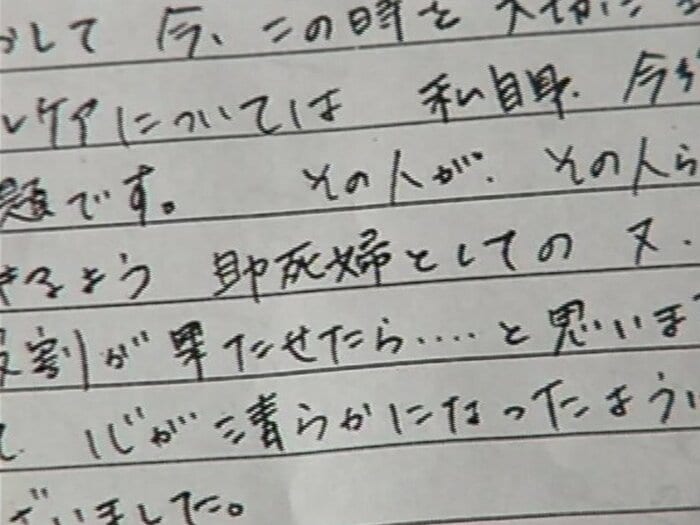 かして 今、この時を 大切に
ルケアについては 私自身、今
題です。 その人が、その人ら
きるよう 助死婦としての 又、
役割が 果たせたら‥‥‥と思いま
て 心が 清らかになったように
ざいました。